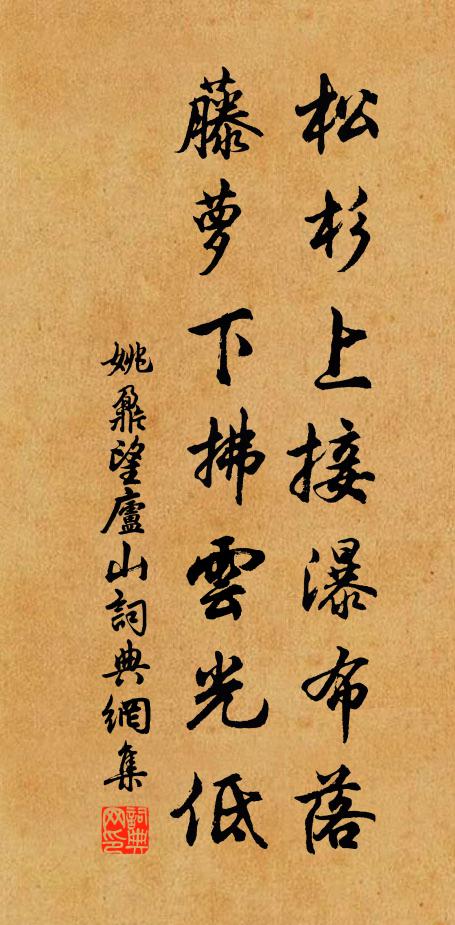 松杉上接瀑布落
藤萝下拂雲光低
姚鼐望廬山詞典網集
詞典网印